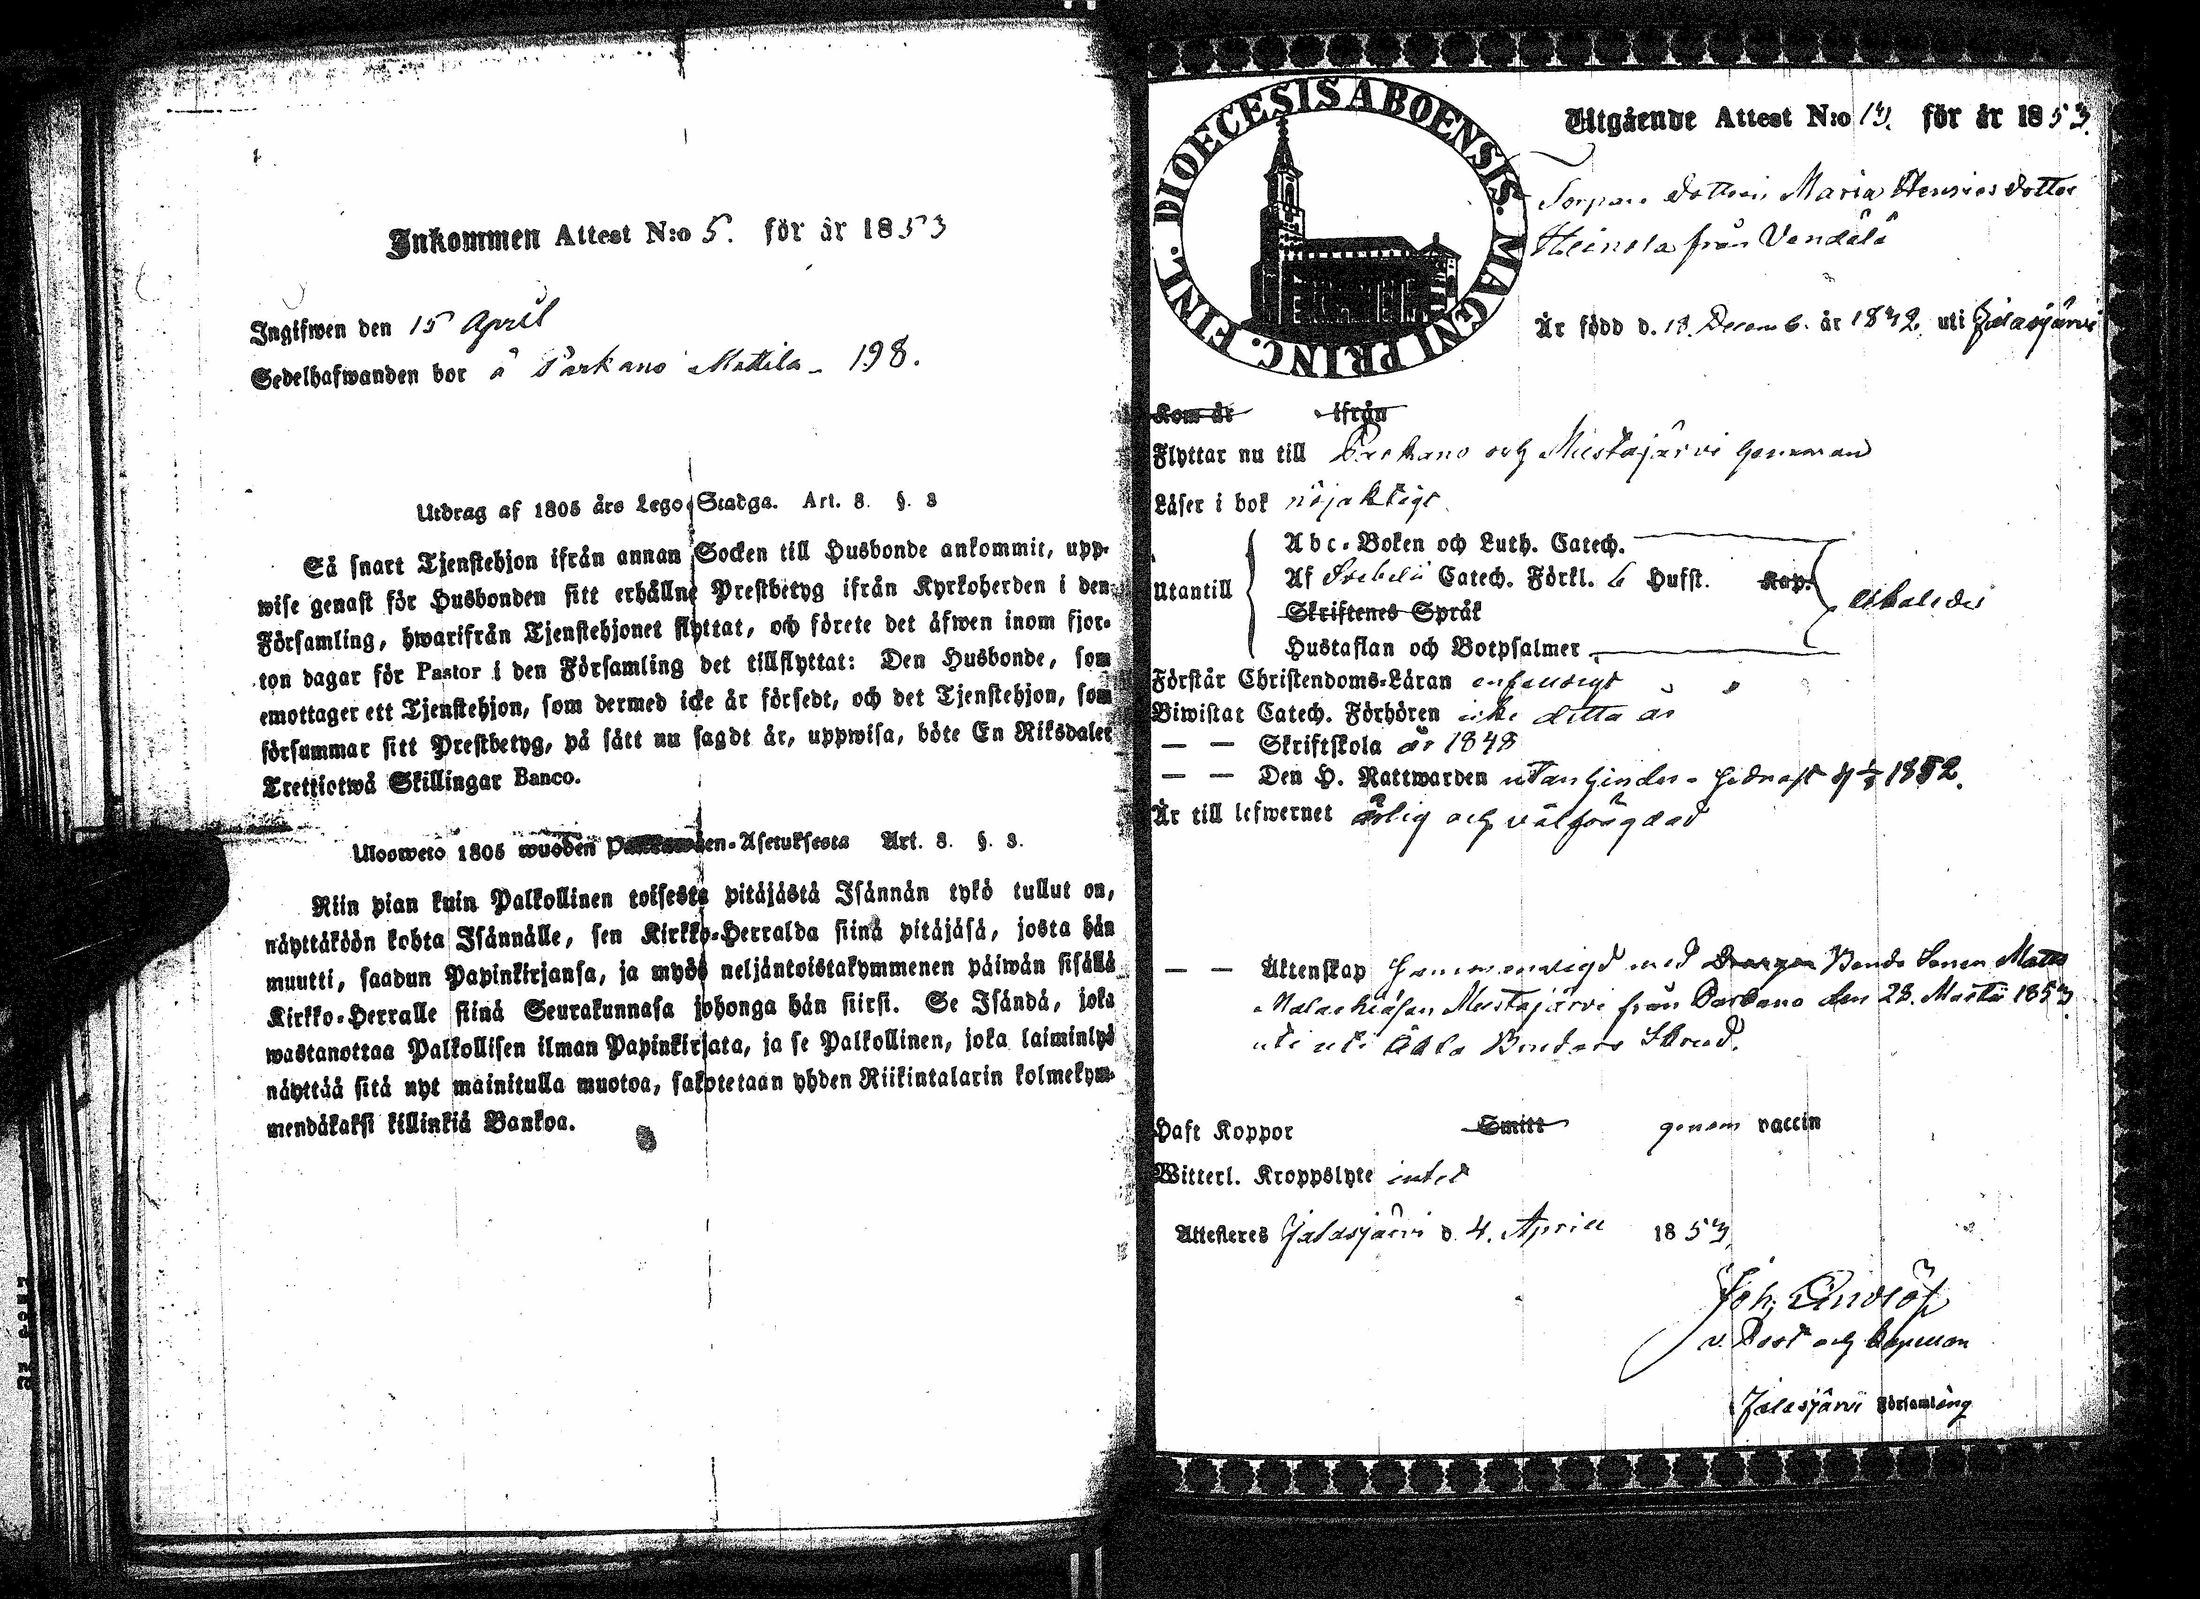 Inkommen Attest N:o 5. för år 1853
Ingifwen den 15 April
Sedelhafwanden bor å Parkano Mattila 198.
Utdrag af 1805 års Lego-Stadga. Art. 8. §. 3
Så snart Tjenstehjon ifrån annan Socken till Husbonde ankommit, upp-
wise genast för Husbonden sitt erhållne Prestbetyg ifrån Kyrkoherden i den
Församling, hwarifrån Tjenstehjonet flyttat, och förete det äfwen inom fjor-
ton dagar för Pastor i den Församling det tillflyttat: Den Husbonde, som
emottager ett Tjenstehjon, som dermed icke är försedt, och det Tjenstehjon, som
försummar sitt Prestbetyg, på sätt nu sagdt är, uppwisa, böte En Riksdaler
Trettiotwå Skillingar Banco.
Ulosweto 1805 wuoden Palkawäen-Asetuksesta Art. 8. §. 3.
Niin pian kuin Palkollinen toisesta pitäjästä Isännän tykö tullut on,
näyttäköön kohta Isännälle, sen Kirkko-Herralda siinä pitäjäsä, josta hän
muutti, saadun Papinkirjansa, ja myös neljäntoistakymmenen päiwän sisällä
Kirkko-Herralle siinä Seurakunnasa johonga hän siirsi. Se Isändä, joka
wastanottaa Palkollisen ilman Papinkirjata, ja se Palkollinen, joka laiminlyö
näyttää sitä nyt mainitulla muotoa, sakotetaan yhden Riikintalarin kolmekym-
mendäkaksi killinkiä Bankoa.
DIOECESIS ABOENSIS. MAGNI PRINC. FINL.
Utgående Attest N:o 13. för år 1853.
Torpare Dottren Maria Henricsdotter
Heinola från Vendälä
Är född d. 18 Decemb. år 1832 uti Jalasjärvi
Kom år ifrån
Flyttar nu till Parkano och Mustajärvi hemman
Läser i bok nöjaktigt
Abc-Boken och Luth. Catech.
Utantill Af Svebelii Catech. Förkl. 6 Hufst. Kap.
Skriftenes Språk
Hustaflan och Botpsalmer
Förstår Christendoms-Läran enfaldigt
Biwistat Catech. Förhören icke detta år
— — Skriftskola år 1848
— — Den H. Nattwarden utan hinder - sednast 1852.
Är till lefwernet ärlig och välfrägdad
— — Äktenskap sammanvigd med Bonde Sonen Matts
Malachiasson Mustajärvi från Parkano den 28. Martii 1853
Haft Koppor Smitt genom vaccin
Witterl. Kroppslyte intet
Attesteres Jalasjärvi d. 4. April 1853
Joh: Lindlöf
v. Past och Capellan
Jalasjärvi Församling